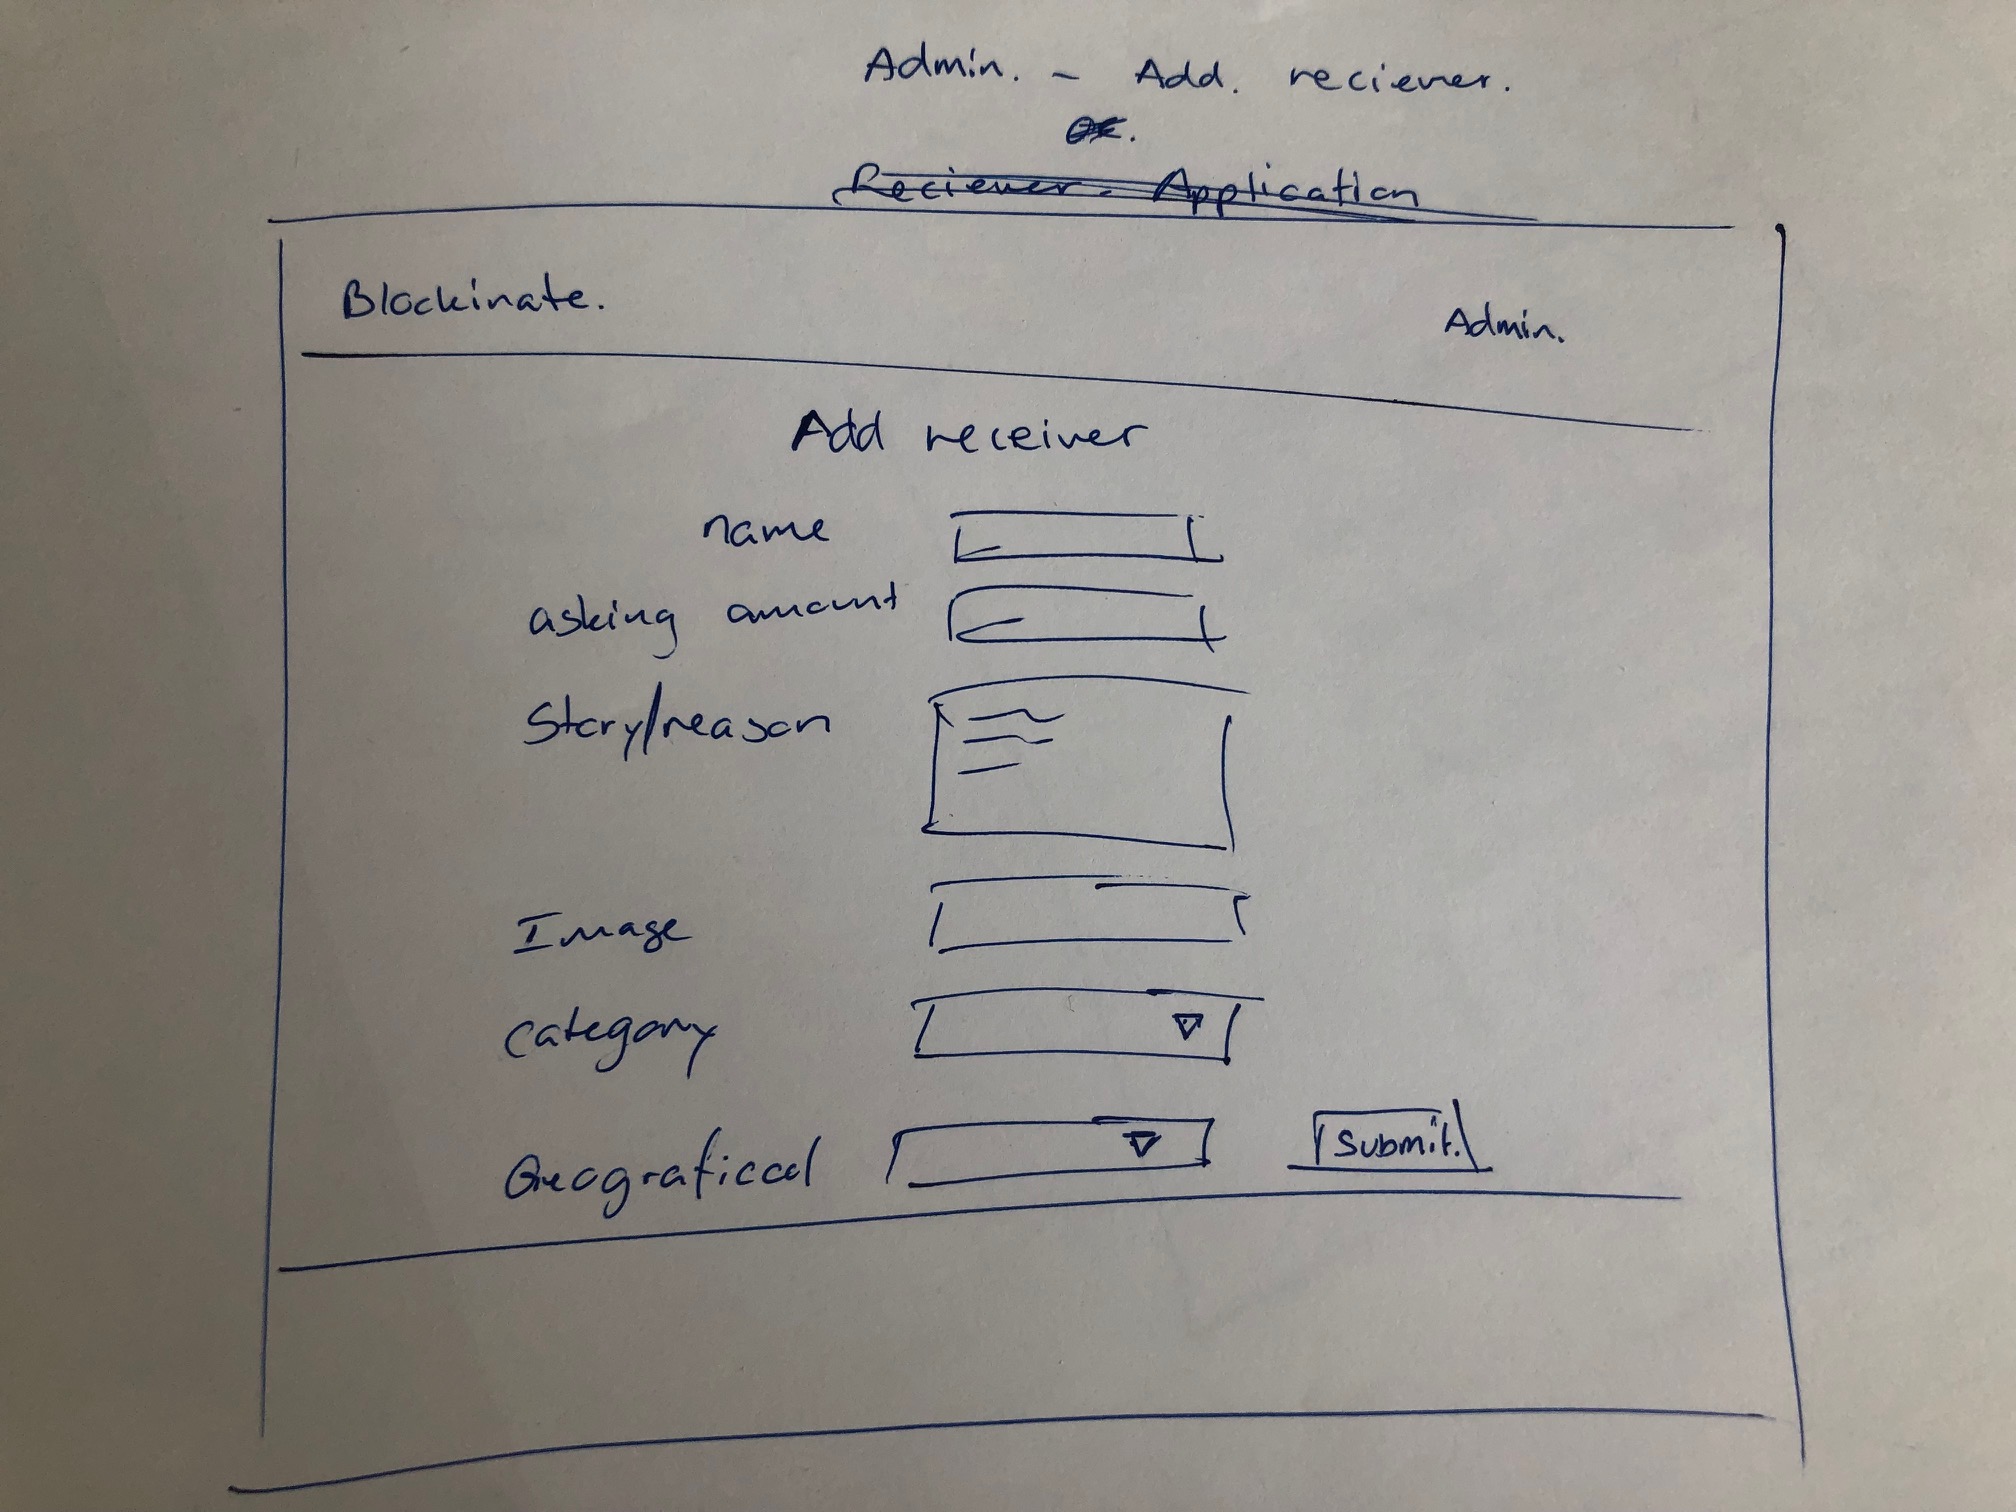 Admin. - Add. reciever.
or.
Reciever - Application
Blockinate.
Admin.
Add receiver
name
asking amount
Story/reason
Image
Category
Geografical
Submit.